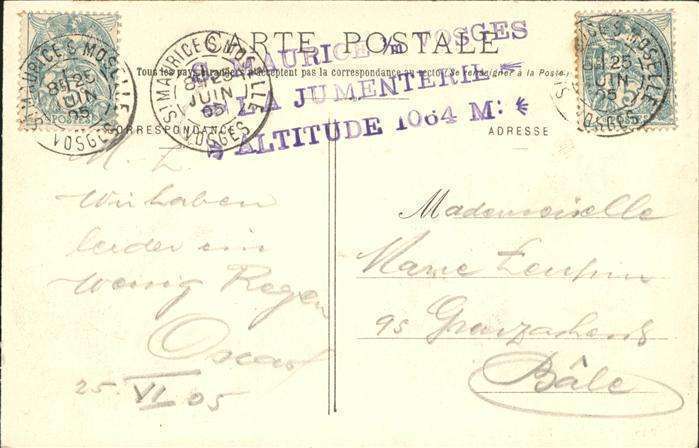 CARTE POSTALE
Tous les pays étrangers n'acceptent pas la correspondance au recto. (Se renseigner à la Poste)
ST MAURICE S/M VOSGES
LA JUMENTERIE
ALTITUDE 1064 M:
ST MAURICE S MOSELLE
25
JUIN
05
VOSGES
ST MAURICE S MOSELLE
JUIN
05
VOSGES
MOSELLE
25
JUIN
05
VOSGES
CORRESPONDANCE
ADRESSE
M. L.
Wir haben
leider ein
wenig Regen
Oscar
25 VI 05
Mademoiselle
Marie
95
Bâle